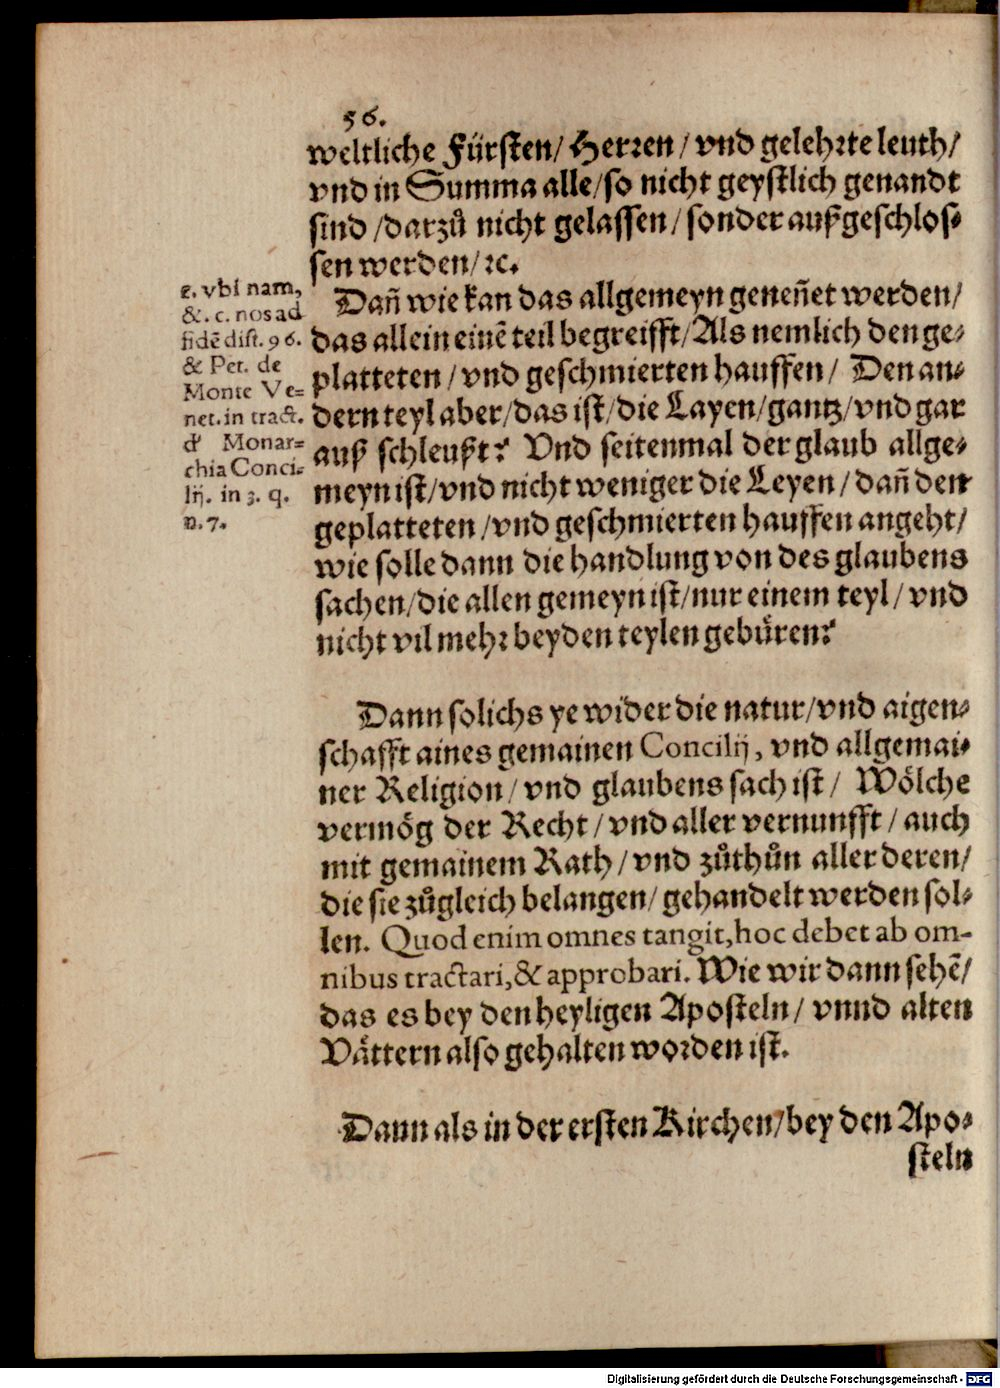 56.
weltliche Fürsten/ Herꝛen/ vnd gelehꝛte leuth/
vnd in Summa alle/ so nicht geystlich genandt
sind/ darzů nicht gelassen/ sonder außgeschlos⸗
sen werden/ ꝛc.
c. vbi nam,
&. c. nos ad
fidē dist. 96.
& Pet. de
Monte Ve-
net. in tract.
d' Monar-
chia Conci-
lij. in 3. q.
n. 7.
Dañ wie kan das allgemeyn geneñet werden/
das allein einē teil begreifft/ Als nemlich den ge⸗
platteten/ vnd geschmierten hauffen/ Den an⸗
dern teyl aber/ das ist/ die Layen/ gantz/ vnd gar
auß schleußt? Vnd seitenmal der glaub allge⸗
meyn ist/ vnd nicht weniger die Leyen/ dañ den
geplatteten/ vnd geschmierten hauffen angeht/
wie solle dann die handlung von des glaubens
sachen/ die allen gemeyn ist/ nur einem teyl/ vnd
nicht vil mehꝛ beyden teylen gebüren?
Dann solichs ye wider die natur/ vnd aigen⸗
schafft aines gemainen Concilij, vnd allgemai⸗
ner Religion/ vnd glaubens sach ist/ Wölche
vermög der Recht/ vnd aller vernunfft/ auch
mit gemainem Rath/ vnd zůthůn aller deren/
die sie zůgleich belangen/ gehandelt werden sol⸗
len. Quod enim omnes tangit, hoc debet ab om-
nibus tractari, & approbari. Wie wir dann sehē/
das es bey den heyligen Aposteln/ vnnd alten
Vättern also gehalten woꝛden ist.
Dann als in der ersten Kirchen/ bey den Apo⸗
steln
Digitalisierung gefördert durch die Deutsche Forschungsgemeinschaft - DFG